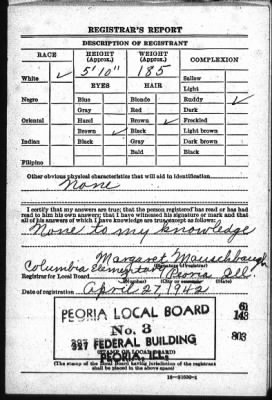 REGISTRAR'S REPORT
DESCRIPTION OF REGISTRANT
RACE HEIGHT (Approx.) WEIGHT (Approx.) COMPLEXION
White ✓ 5'10" 185 Sallow
EYES HAIR Light
Negro Blue Blonde Ruddy ✓
Gray Red Dark
Oriental Hazel Brown ✓ Freckled
Brown ✓ Black Light brown
Indian Black Gray Dark brown
Bald Black
Filipino
Other obvious physical characteristics that will aid in identification
None
I certify that my answers are true; that the person registered has read or has had
read to him his own answers; that I have witnessed his signature or mark and that
all of his answers of which I have knowledge are true, except as follows:
None to my knowledge
Margaret Mauschbaugh
(Signature of registrar)
Columbia Elementary Peoria Ill.
Registrar for Local Board
(Number) (City or county)
Date of registration April 27, 1942
PEORIA LOCAL BOARD 61
No. 3 143
327 FEDERAL BUILDING 803
(STAMP OF LOCAL BOARD)
PEORIA, ILL.
(The stamp of the Local Board having jurisdiction of the registrant
shall be placed in the above space)